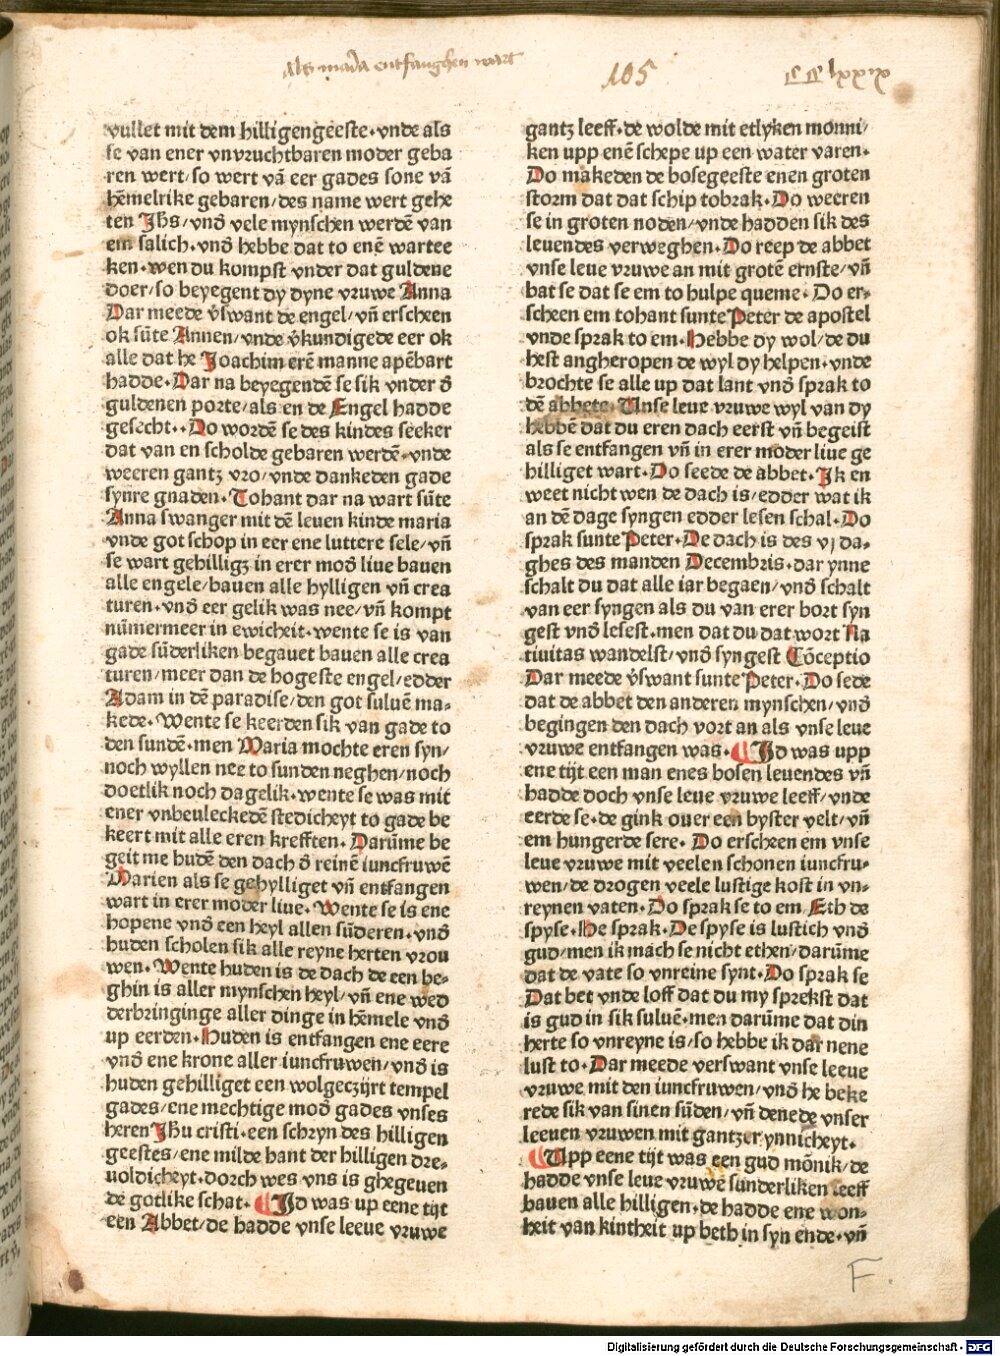 Als maria entfanghen wart
105
CC lxxix
vullet mit dem hilligengeeste. vnde als
se van ener vnvruchtbaren moder geba
ren wert/so wert vā eer gades sone vā
hēmelrike gebaren/des name wert gehe
ten Jhs/vnd̄ vele mynschen werdē van
em salich. vnd̄ hebbe dat to enē wartee
ken. wen du kompst vnder dat guldene
doer/so beyegent dy dyne vruwe Anna
Dar meede v̄swant de engel/vn̄ erscheen
ok sūte Annen/vnde v̄kundigede eer ok
alle dat he Joachim erē manne apēbart
hadde. Dar na beyegendē se sik vnder d̄
guldenen porte/als en de Engel hadde
gesecht.. Do wordē se des kindes seeker
dat van en scholde gebaren werdē. vnde
weeren gantz vro/vnde dankeden gade
synre gnaden. Tohant dar na wart sūte
Anna swanger mit dē leuen kinde maria
vnde got schop in eer ene luttere sele/vn̄
se wart gehilligz in erer mod̄ liue bauen
alle engele/bauen alle hylligen vn̄ crea
turen. vnd̄ eer gelik was nee/vn̄ kompt
nūmermeer in ewicheit. wente se is van
gade sūderliken begauet bauen alle crea
turen/meer dan de hogeste engel/edder
Adam in dē paradise/den got suluē ma-
kede. Wente se keerden sik van gade to
den sundē. men Maria mochte eren syn/
noch wyllen nee to sunden neghen/noch
doetlik noch dagelik. wente se was mit
ener vnbeuleckedē stedicheyt to gade be
keert mit alle eren krefften. Darūme be
geit me hudē den dach d̄ reinē iuncfruwē
Marien als se gehylliget vn̄ entfangen
wart in erer moder liue. Wente se is ene
hopene vnd̄ een heyl allen sūderen. vnd̄
huden scholen sik alle reyne herten vrou
wen. Wente huden is de dach de een be-
ghin is aller mynschen heyl/vn̄ ene wed
derbringinge aller dinge in hēmele vnd̄
up eerden. Huden is entfangen ene eere
vnd̄ ene krone aller iuncfruwen/vnd̄ is
huden gehilliget een wolgeczijrt tempel
gades/ene mechtige mod̄ gades vnses
heren Jhu cristi. een schryn des hilligen
geestes/ene milde hant der hilligen dre-
uoldicheyt. dorch wes vns is ghegeuen
de gotlike schat. ¶Jd was up eene tijt
een Abbet/de hadde vnse leeue vruwe
gantz leeff. de wolde mit etlyken monni/
ken upp enē schepe up een water varen.
Do makeden de bosegeeste enen groten
storm dat dat schip tobrak. Do weeren
se in groten noden/vnde hadden sik des
leuendes verweghen. Do reep de abbet
vnse leue vruwe an mit grotē ernste/vn̄
bat se dat se em to hulpe queme. Do er-
scheen em tohant sunte Peter de apostel
vnde sprak to em. Hebbe dy wol/de du
hest angheropen de wyl dy helpen. vnde
brochte se alle up dat lant vnd̄ sprak to
dē abbete. Vnse leue vruwe wyl van dy
hebbē dat du eren dach eerst vn̄ begeist
als se entfangen vn̄ in erer moder liue ge
hilliget wart. Do seede de abbet. Jk en
weet nicht wen de dach is/edder wat ik
an dē dage syngen edder lesen schal. Do
sprak sunte Peter. De dach is des vj da-
ghes des manden Decembris. dar ynne
schalt du dat alle iar begaen/vnd̄ schalt
van eer syngen als du van erer bort syn
gest vnd̄ lesest. men dat du dat wort Na
tiuitas wandelst/vnd̄ syngest Cōceptio
Dar meede v̄swant sunte Peter. Do sede
dat de abbet den anderen mynschen/vnd̄
begingen den dach vort an als vnse leue
vruwe entfangen was. ¶Jd was upp
ene tijt een man enes bosen leuendes vn̄
hadde doch vnse leue vruwe leeff/vnde
eerde se. de gink ouer een byster velt/vn̄
em hungerde sere. Do erscheen em vnse
leue vruwe mit veelen schonen iuncfru-
wen/de drogen veele lustige kost in vn-
reynen vaten. Do sprak se to em. Eth de
spyse. He sprak. De spyse is lustich vnd̄
gud/men ik mach se nicht ethen/darūme
dat de vate so vnreine synt. Do sprak se
Dat bet vnde loff dat du my sprekst dat
is gud in sik suluē. men darūme dat din
herte so vnreyne is/so hebbe ik dar nene
lust to. Dar meede verswant vnse leeue
vruwe mit den iuncfruwen/vnd̄ he beke
rede sik van sinen sūden/vn̄ denede vnser
leeuen vruwen mit gantzer ynnicheyt.
¶Upp eene tijt was een gud mōnik/de
hadde vnse leue vruwe sunderliken leeff
bauen alle hilligen. de hadde ene won-
heit van kintheit up beth in syn ende. vn̄
F.
Digitalisierung gefördert durch die Deutsche Forschungsgemeinschaft - DFG